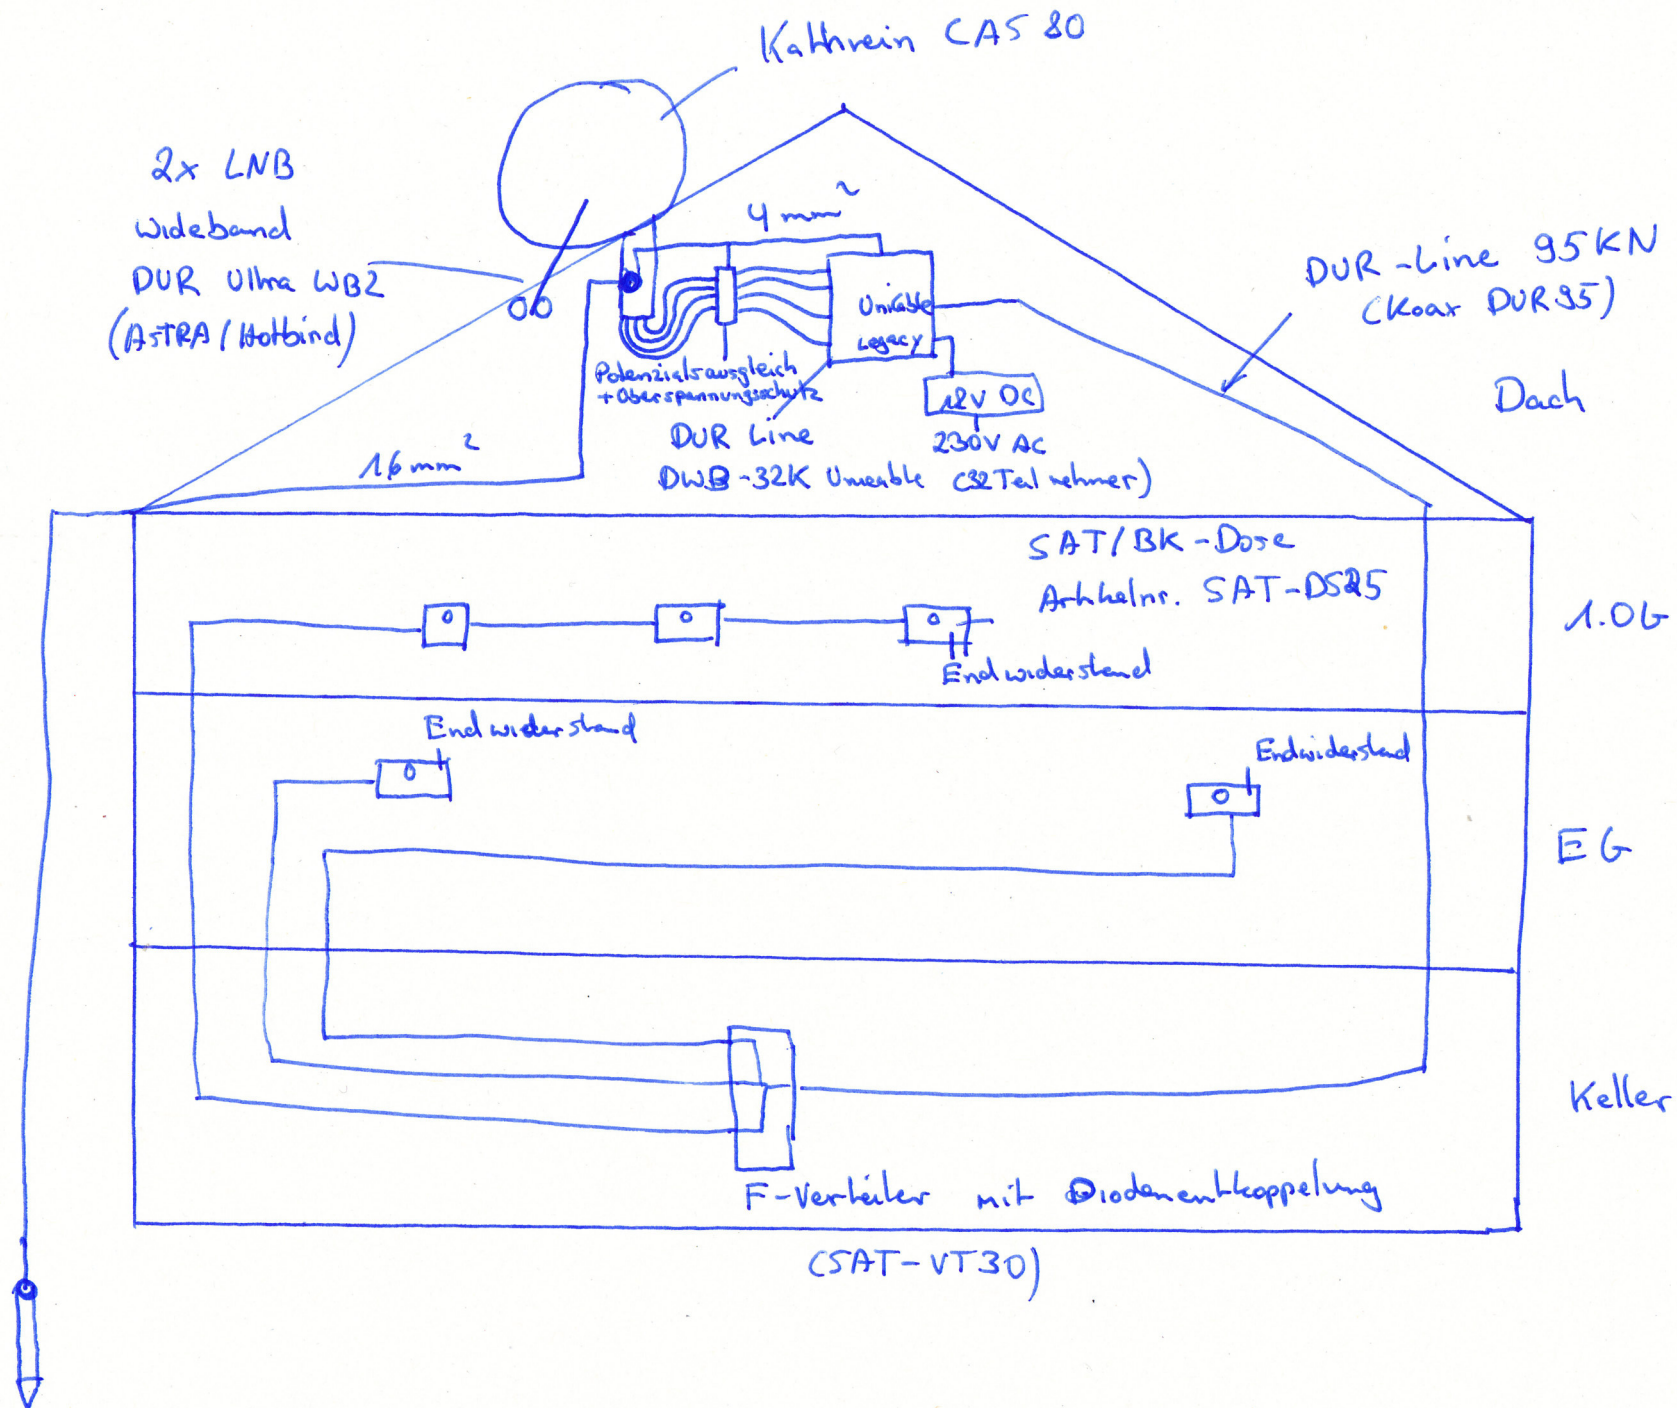 Kathrein CAS 80
2x LNB
Wideband
DUR Ultra WB2
(ASTRA/Hotbird)
4 mm²
DUR-Line 95KN
(Koax DUR95)
Unicable
Legacy
Potenzialsausgleich
+Überspannungsschutz
12V DC
230V AC
Dach
DUR Line
DWB-32K Unicable (32 Teilnehmer)
16 mm²
SAT/BK-Dose
Artikelnr. SAT-DS25
1.OG
Endwiderstand
Endwiderstand
Endwiderstand
EG
Keller
F-Verteiler mit Diodenentkoppelung
(SAT-VT30)